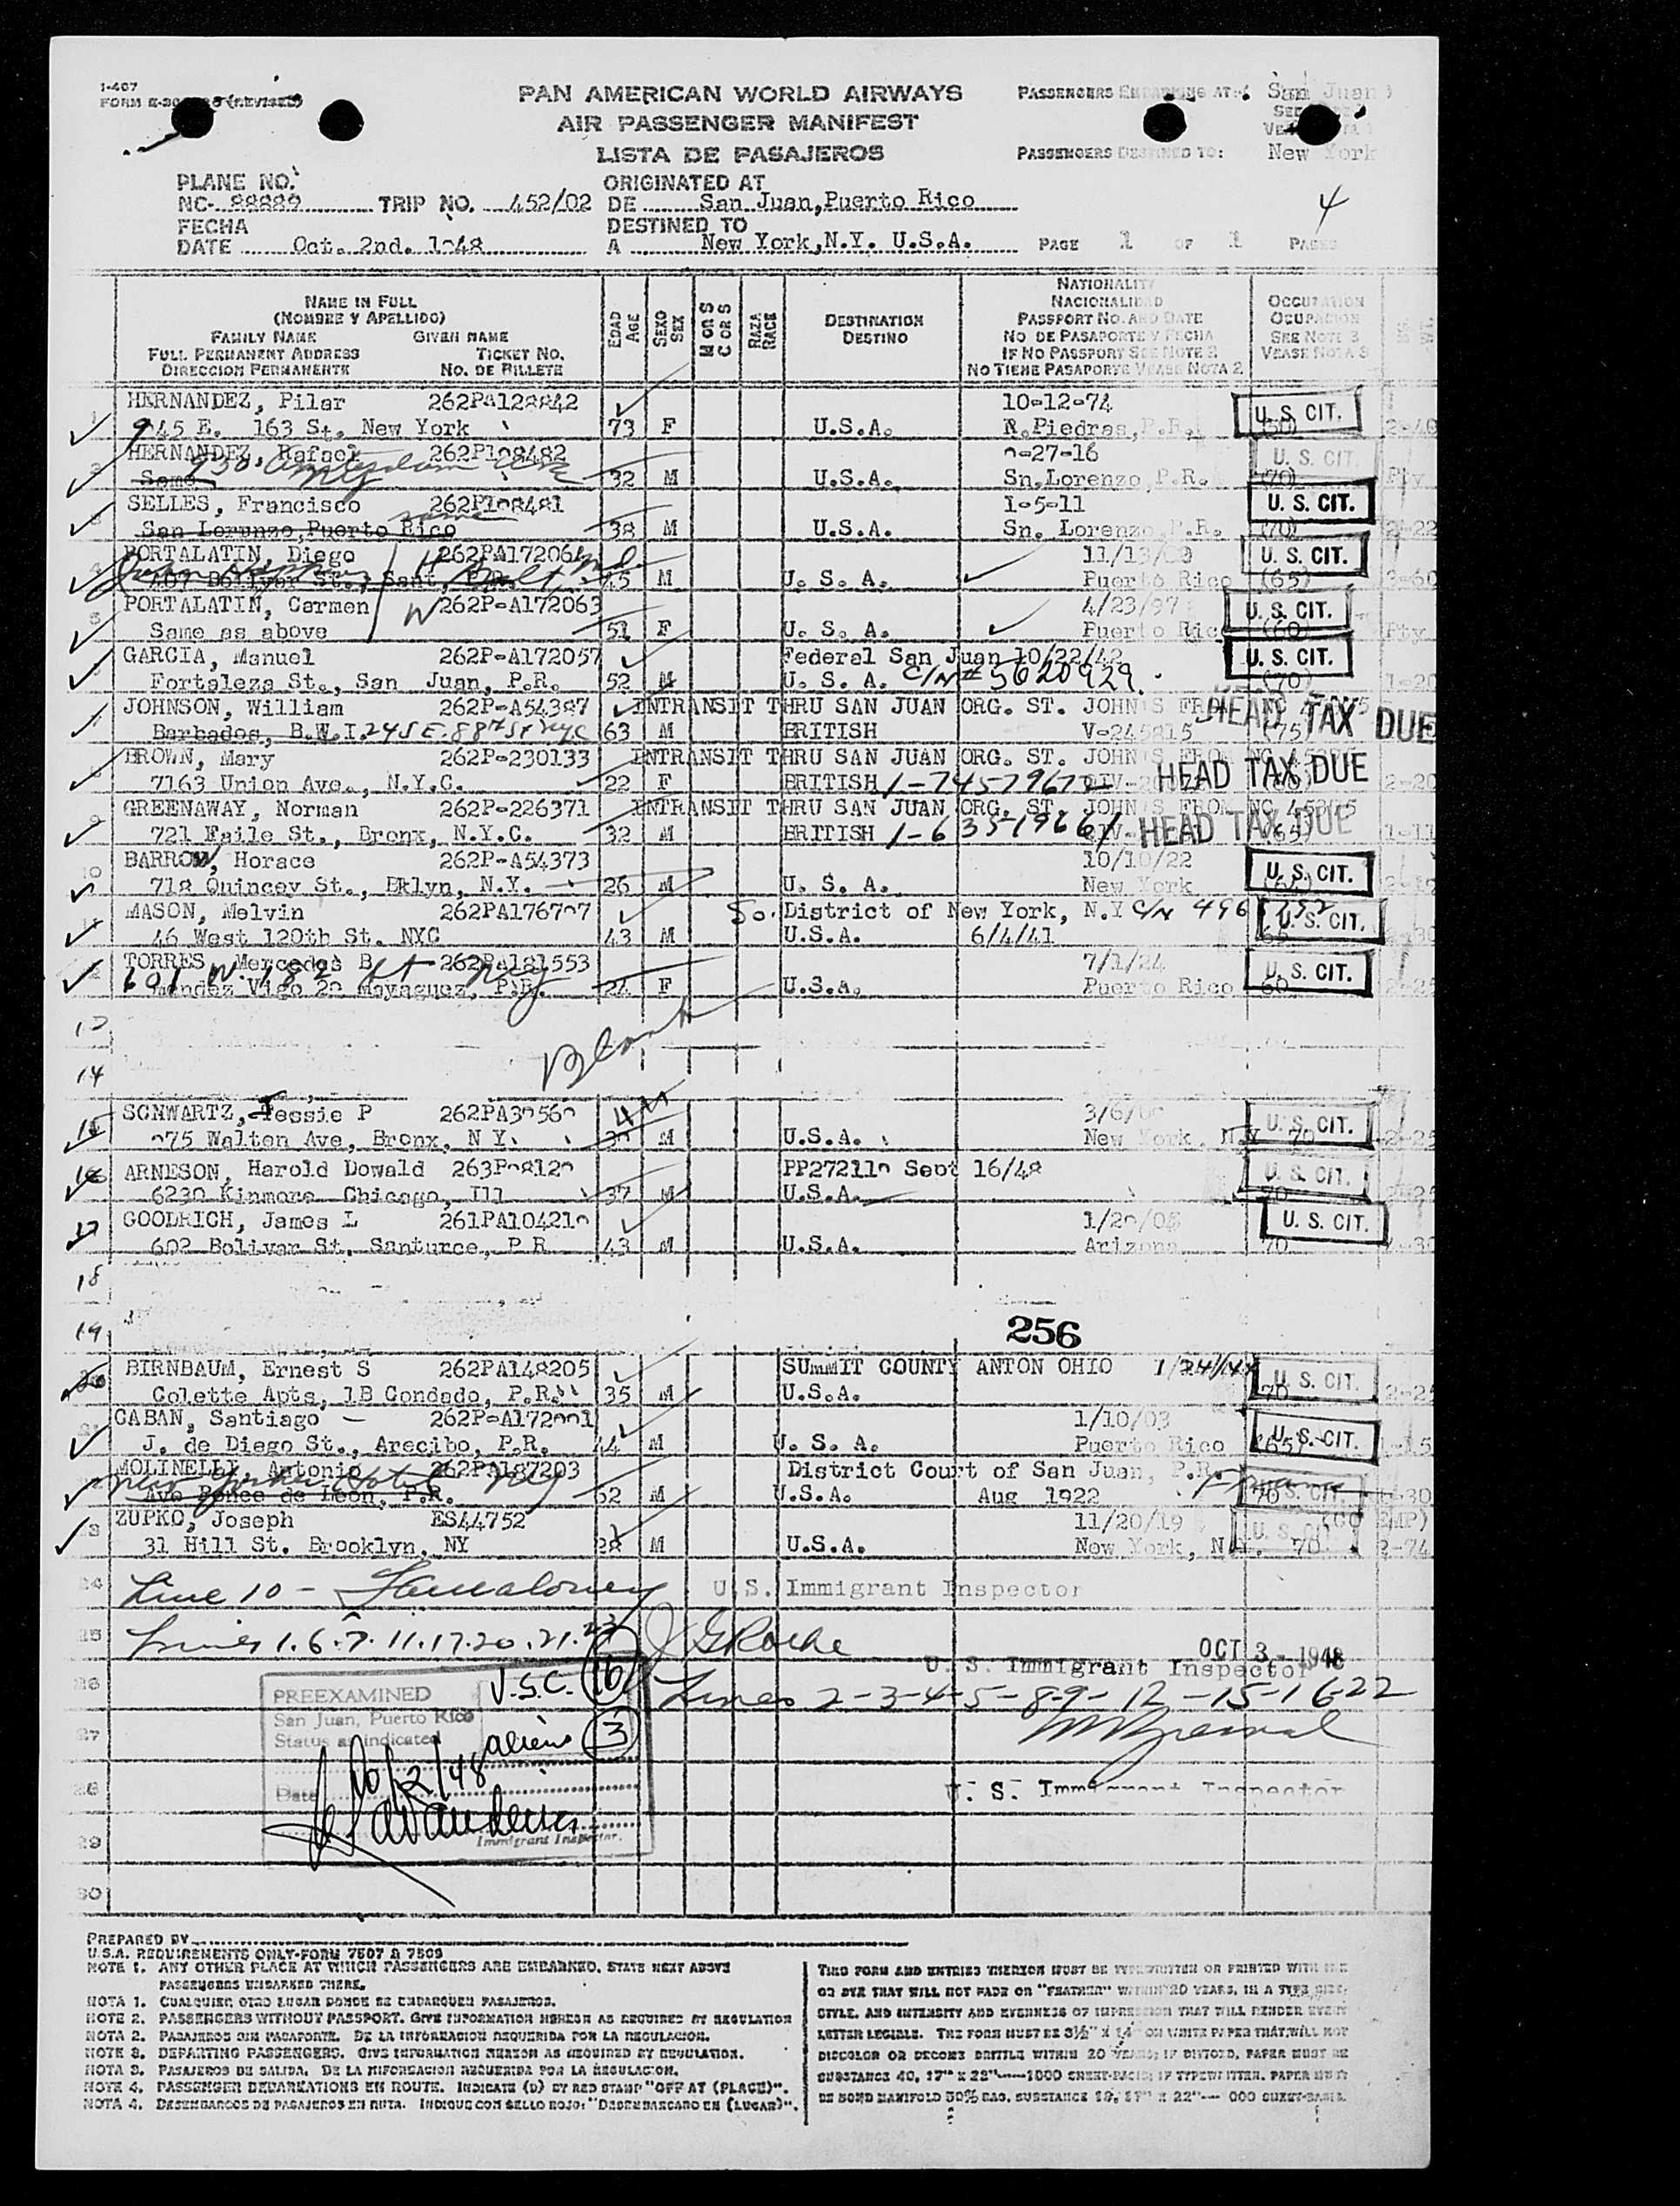 I-407
PAN AMERICAN WORLD AIRWAYS
AIR PASSENGER MANIFEST
LISTA DE PASAJEROS
PASSENGERS EMBARKING AT: San Juan
PASSENGERS DESTINED TO: New York
PLANE NO.
NC- 88889 TRIP NO. 452/02
ORIGINATED AT
DE San Juan,Puerto Rico
4
FECHA
DATE Oct. 2nd. 1948
DESTINED TO
A New York,N.Y. U.S.A.
PAGE 1 OF 1 PAGES
NAME IN FULL
(NOMBRE Y APELLIDO)
FAMILY NAME GIVEN NAME
FULL PERMANENT ADDRESS TICKET NO.
DIRECCION PERMANENTE NO. DE BILLETE
EDAD AGE
SEXO SEX
M OR S C OR S
RAZA RACE
DESTINATION
DESTINO
NATIONALITY
NACIONALIDAD
PASSPORT NO. AND DATE
NO DE PASAPORTE Y FECHA
IF NO PASSPORT SEE NOTE 2
NO TIENE PASAPORTE VEASE NOTA 2
OCCUPATION
OCUPACION
SEE NOTE 3
VEASE NOTA 3
HERNANDEZ, Pilar 262PA128842 10-12-74 U. S. CIT.
945 E. 163 St. New York 73 F U.S.A. R.Piedras,P.R.
HERNANDEZ, Rafael 262P108482 -27-16 U. S. CIT.
Same 930 Amsterdam Ave NY 32 M U.S.A. Sn.Lorenzo,P.R. (70)
SELLES, Francisco 262P108481 1-5-11 U. S. CIT.
San Lorenzo,Puerto Rico same 38 M U.S.A. Sn. Lorenzo,P.R. (70)
PORTALATIN, Diego H 262PA172064 11/13/ U. S. CIT.
Bolivar St., Sant, P.R. Balt, Md. 45 M U. S. A. Puerto Rico (65)
PORTALATIN, Carmen W 262P-A172063 4/23/97 U. S. CIT.
Same as above 51 F U. S. A. Puerto Rico (60)
GARCIA, Manuel 262P-A172057 Federal San Juan 10/22/42 U. S. CIT.
Fortaleza St., San Juan, P.R. 52 M U. S. A. C/N# 5620929. (70)
JOHNSON, William 262P-A54387 INTRANSIT THRU SAN JUAN ORG. ST. JOHN'S HEAD TAX DUE
Barbados, B.W.I. 245 E. 88th St NYC 63 M BRITISH V-245815 (75)
BROWN, Mary 262P-230133 INTRANSIT THRU SAN JUAN ORG. ST. JOHN'S HEAD TAX DUE
7163 Union Ave., N.Y.C. 22 F BRITISH
GREENAWAY, Norman 262P-226371 INTRANSIT THRU SAN JUAN ORG. ST. JOHN'S HEAD TAX DUE
721 Faile St., Bronx, N.Y.C. 32 M BRITISH
BARROW, Horace 262P-A54373 10/10/22 U. S. CIT.
718 Quincey St., Bklyn, N.Y. 26 M U. S. A. New York
MASON, Melvin 262PA176707 So. District of New York, N.Y C/N U. S. CIT.
46 West 120th St. NYC 43 M U.S.A. 6/4/41
TORRES, Mercedes B 262PA181553 7/1/24 U. S. CIT.
601 W. 182 St NY Mendez Vigo Mayaguez, P.R. 24 F U.S.A. Puerto Rico 60
13
Blank
14
SCHWARTZ, Jessie P 3/6/ U. S. CIT.
Walton Ave, Bronx, N Y. M U.S.A. New York, N.Y 70
ARNESON, Harold Dowald Sept 16/48 U. S. CIT.
6230 Kinmore Chicago, Ill 37 M U.S.A. 70
GOODRICH, James L U. S. CIT.
602 Bolivar St. Santurce, P R 43 M U.S.A. Arizona 70
18
19
256
BIRNBAUM, Ernest S 262PA148205 SUMMIT COUNTY ANTON OHIO 1/24/44 U. S. CIT.
Colette Apts, 1B Condado, P.R. 35 M U.S.A. 70
CABAN, Santiago 262P-A172001 1/10/03 U. S. CIT.
J. de Diego St., Arecibo, P.R. 44 M U. S. A. Puerto Rico (65)
MOLINELLI, Antonio 262PA187203 District Court of San Juan, P.R. U. S. CIT.
New Yorker Hotel NY Ave Ponce de Leon, P.R. 62 M U.S.A. Aug 1922 70
ZUPKO, Joseph ES44752 11/20/19 U. S. CIT.
31 Hill St. Brooklyn, NY 28 M U.S.A. New York, N.Y. 70
24 Line 10 - U.S. Immigrant Inspector
25 Lines 1.6.7.11.17.20.21.23 J G Roche OCT 3 - 1948
U. S. Immigrant Inspector
26 U.S.C. 16 Lines 2-3-4-5-8-9-12-15-16-22
PREEXAMINED
San Juan, Puerto Rico
Status as indicated
27 aliens 3
28 Date 10/2/48
U. S. Immigrant Inspector
Immigrant Inspector.
29
30
PREPARED BY
U.S.A. REQUIREMENTS ONLY-FORM 7507 & 7509
NOTE 1. ANY OTHER PLACE AT WHICH PASSENGERS ARE EMBARKED, STATE NEXT ABOVE
PASSENGERS EMBARKED THERE.
NOTA 1. CUALQUIER OTRO LUGAR DONDE SE EMBARQUEN PASAJEROS.
NOTE 2. PASSENGERS WITHOUT PASSPORT. GIVE INFORMATION HEREON AS REQUIRED BY REGULATION
NOTA 2. PASAJEROS SIN PASAPORTE. DE LA INFORMACION REQUERIDA POR LA REGULACION.
NOTE 3. DEPARTING PASSENGERS. GIVE INFORMATION HEREON AS REQUIRED BY REGULATION.
NOTA 3. PASAJEROS DE SALIDA. DE LA INFORMACION REQUERIDA POR LA REGULACION.
NOTE 4. PASSENGER DEBARKATIONS EN ROUTE. INDICATE (D) BY RED STAMP "OFF AT (PLACE)".
NOTA 4. DESEMBARCOS DE PASAJEROS EN RUTA. INDIQUE CON SELLO ROJO: "DESEMBARCARO EN (LUGAR)".
THIS FORM AND ENTRIES THEREON MUST BE TYPEWRITTEN OR PRINTED WITH INK
OR DYE THAT WILL NOT FADE OR "FEATHER" WITHIN 20 YEARS, IN A TYPE SIZE,
STYLE, AND INTENSITY AND EVENNESS OF IMPRESSION THAT WILL RENDER EVERY
LETTER LEGIBLE. THE FORM MUST BE 8½" X 14" ON WHITE PAPER THAT WILL NOT
DISCOLOR OR BECOME BRITTLE WITHIN 20 YEARS; IF DITTOED, PAPER MUST BE
SUBSTANCE 40, 17" X 22"—1000 SHEET-BASIS; IF TYPEWRITTEN, PAPER MUST
BE BOND MANIFOLD 50% RAG, SUBSTANCE 16, 17" X 22"— 000 SHEET-BASIS.